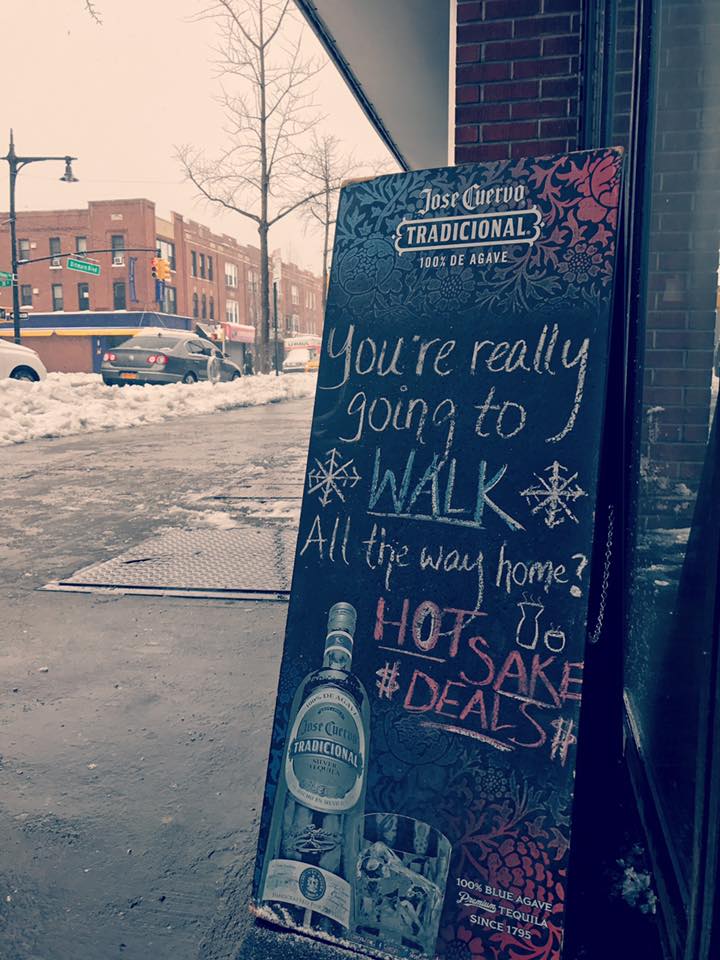 Jose Cuervo
TRADICIONAL
100% DE AGAVE
You're really
going to
WALK
All the way home?
HOT
SAKE
#DEALS#
100% DE AGAVE
Jose Cuervo
TRADICIONAL
SILVER
TEQUILA
HECHO EN MEXICO
100% BLUE AGAVE
Premium TEQUILA
SINCE 1795
Ditmars Blvd